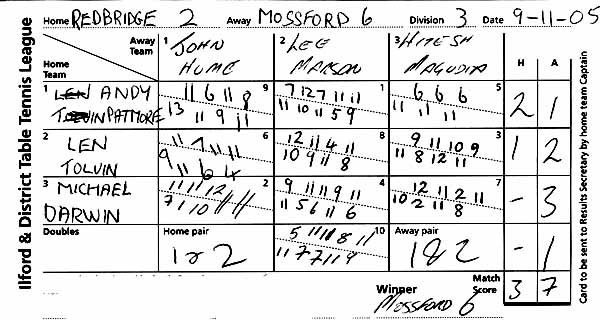 Home REDBRIDGE 2 Away MOSSFORD 6 Division 3 Date 9-11-05
Ilford & District Table Tennis League
Away Team
Home Team
1 JOHN HUME
2 LEE MARSON
3 HITESH MAGUDIA
H A
1 ANDY PATMORE
9 11 6 11 8
13 11 9 11
1 7 12 7 11 11
11 10 11 5 9
5 6 6 6
11 11 11
2 1
2 LEN TOLVIN
6 11 7 11 11
9 11 6 4
8 12 11 4 11
10 9 11 8
3 9 11 10 9
11 8 12 11
1 2
3 MICHAEL DARWIN
2 11 11 12
7 1 10
4 9 11 11 9 11
11 5 6 11 6
7 12 11 2 11
10 2 11 8
- 3
Doubles
Home pair
1 & 2
10 5 11 11 8 11
11 7 7 11 9
Away pair
1 & 2
- 1
Winner MOSSFORD 6
Match Score 3 7
Card to be sent to Results Secretary by home team Captain